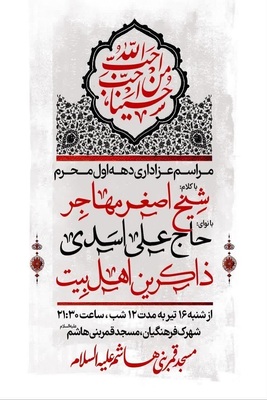 احب الله
من احب
حسینا
مراسم عزاداری دهه اول محرم
با کلام:
شیخ اصغر مهاجر
با نوای:
حاج علی اسدی
ذاکرین اهل بیت
از شنبه ۱۶ تیر به مدت ۱۲ شب، ساعت ۲۱:۳۰
شهرک فرهنگیان، مسجد قمر بنی هاشم علیه‌السلام
مسجد قمر بنی هاشم علیه السلام